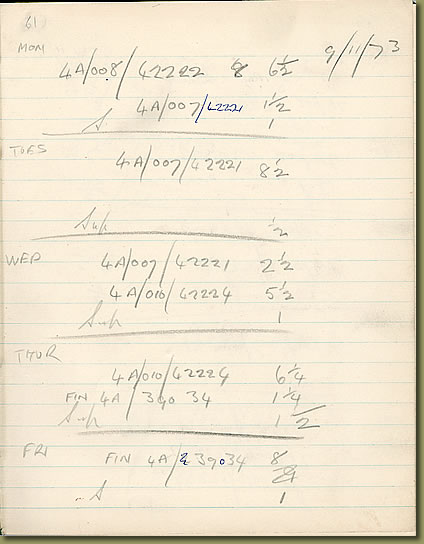 61
MON 9/11/73
4A/008/42222 8 6½
4A/007/42221 1½
S 1
TUES
4A/007/42221 8½
Sup ½
WED 4A/007/42221 2½
4A/010/42224 5½
Sup 1
THUR
4A/010/42224 6¼
FIN 4A/39034 1¼
Sup 1½
FRI FIN 4A/239034 8
S 1